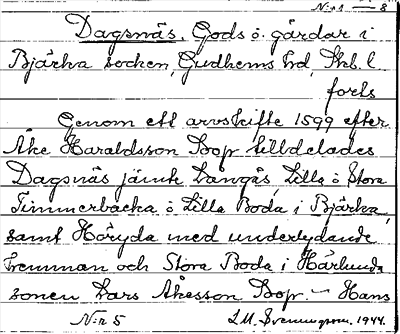 N:r 1 — 8
Dagsnäs. Gods o. gårdar i
Bjärka socken, Gudhems hd, Skb. l.
forts
Genom ett arvskifte 1599 efter
Åke Haraldsson Soop tilldelades
Dagsnäs jämte Långås, Lilla o Stora
Timmerbacka o Lilla Boda i Bjärka,
samt Höryda med underlydande
hemman och Stora Boda i Härlunda
sonen Lars Åkesson Soop. — Hans
N:r 5
J.M. Svenningson. 1944.